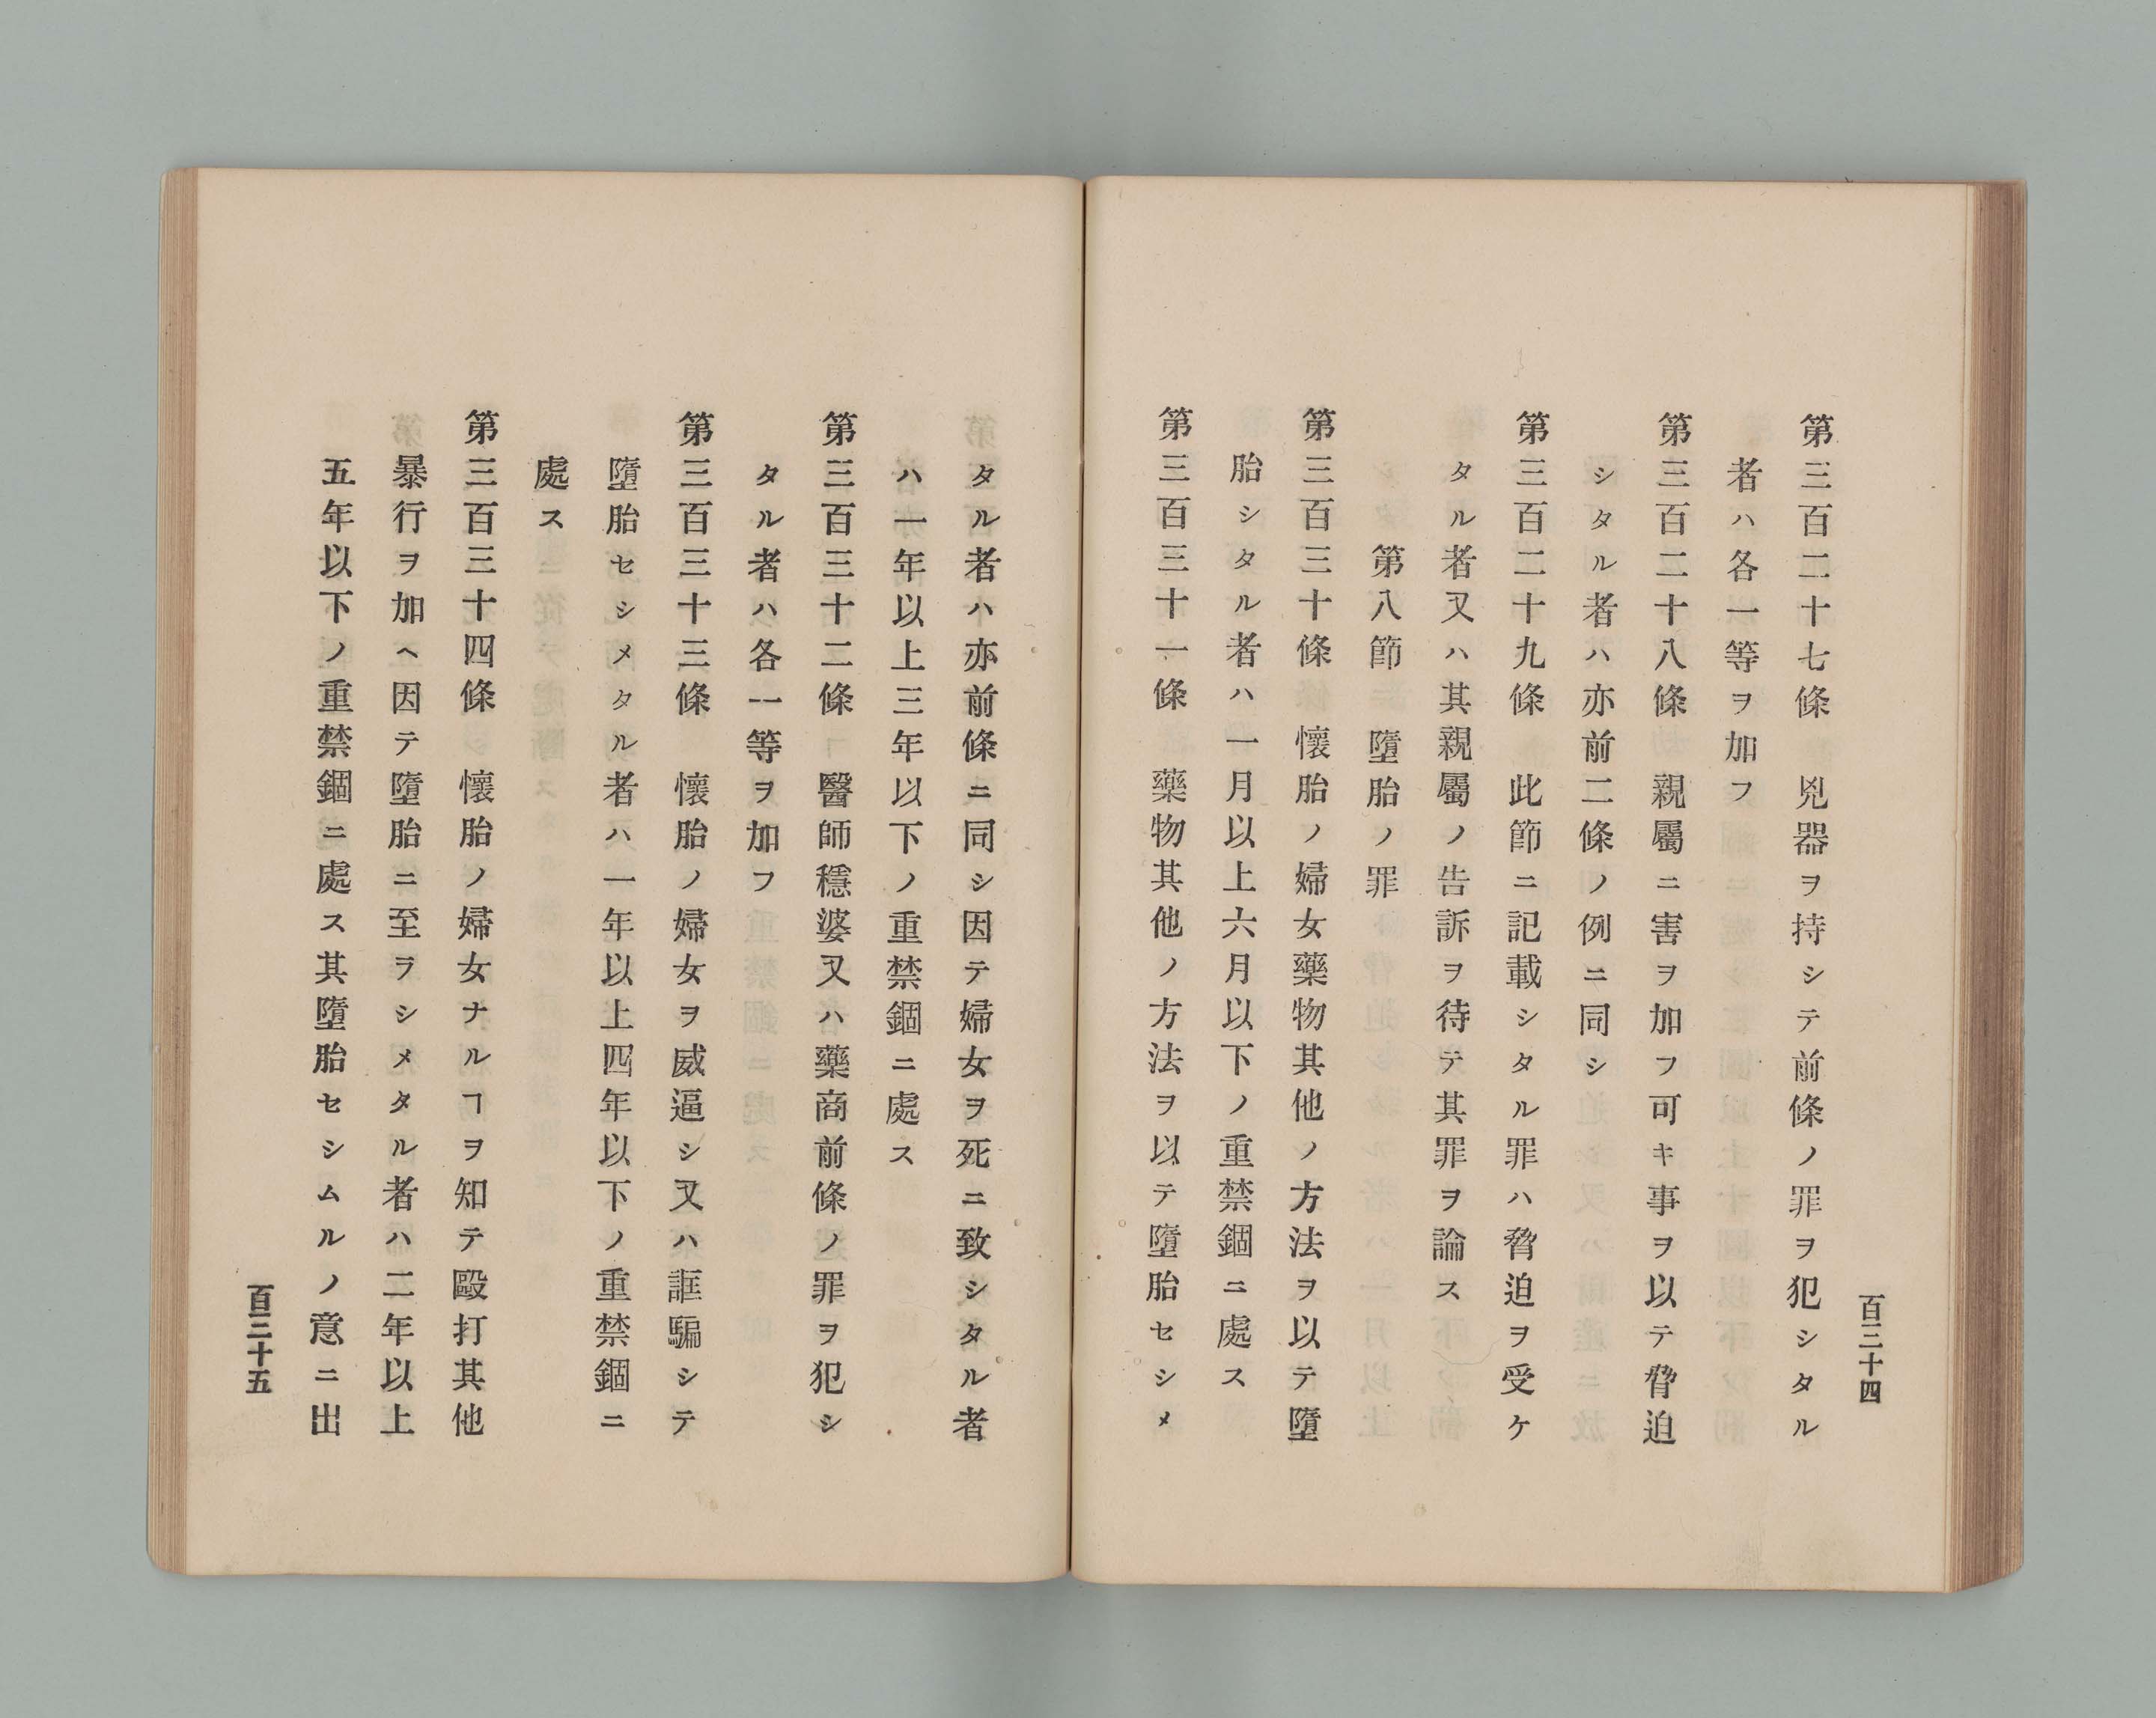 第三百二十七條　兇器ヲ持シテ前條ノ罪ヲ犯シタル
者ハ各一等ヲ加フ
第三百二十八條　親屬ニ害ヲ加フ可キ事ヲ以テ脅迫
シタル者ハ亦前二條ノ例ニ同シ
第三百二十九條　此節ニ記載シタル罪ハ脅迫ヲ受ケ
タル者又ハ其親屬ノ告訴ヲ待テ其罪ヲ論ス
第八節　墮胎ノ罪
第三百三十條　懷胎ノ婦女藥物其他ノ方法ヲ以テ墮
胎シタル者ハ一月以上六月以下ノ重禁錮ニ處ス
第三百三十一條　藥物其他ノ方法ヲ以テ墮胎セシメ
百三十四
タル者ハ亦前條ニ同シ因テ婦女ヲ死ニ致シタル者
ハ一年以上三年以下ノ重禁錮ニ處ス
第三百三十二條　醫師穩婆又ハ藥商前條ノ罪ヲ犯シ
タル者ハ各一等ヲ加フ
第三百三十三條　懷胎ノ婦女ヲ威逼シ又ハ誆騙シテ
墮胎セシメタル者ハ一年以上四年以下ノ重禁錮ニ
處ス
第三百三十四條　懷胎ノ婦女ナルヿヲ知テ毆打其他
暴行ヲ加ヘ因テ墮胎ニ至ラシメタル者ハ二年以上
五年以下ノ重禁錮ニ處ス其墮胎セシムルノ意ニ出
百三十五